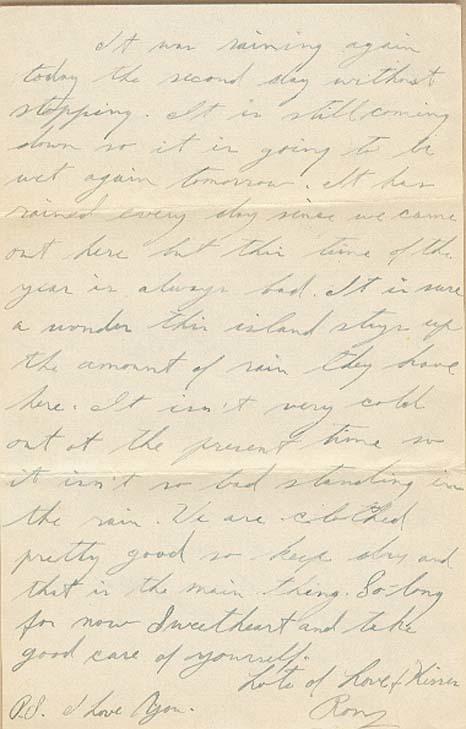 It was raining again
today the second day without
stopping. It is still coming
down so it is going to be
wet again tomorrow. It has
rained every day since we came
out here but this time of the
year is always bad. It is sure
a wonder this island stays up
the amount of rain they have
here. It isn't very cold
out at the present time so
it isn't so bad standing in
the rain. We are clothed
pretty good so keep dry and
that is the main thing. So-long
for now Sweetheart and take
good care of yourself.
Lots of Love & Kisses
P.S. I Love You.